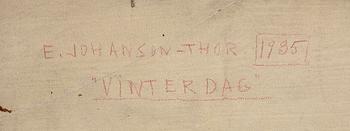 E. JOHANSON-THOR. 1935
"VINTERDAG"